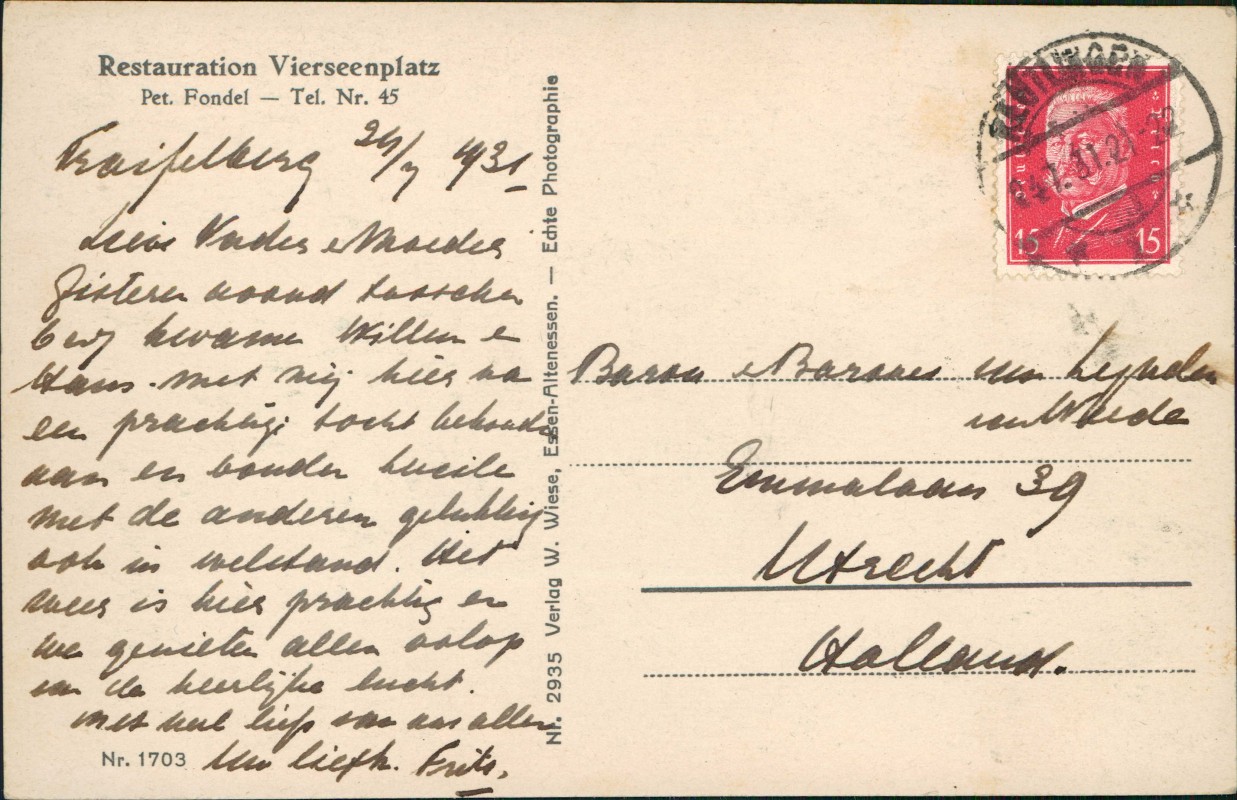 Restauration Vierseenplatz
Pet. Fondel — Tel. Nr. 45
Traifelberg 24/7 1931
Lieve Vader & Moeder
Gisteren avond tusschen
6 en 7 kwamen Willem en
Hans met mij hier na
een prachtige tocht behouden
aan en vonden hier
met de anderen gelukkig
ook in welstand. Het
weer is hier prachtig en
we genieten allen volop
van de heerlijke lucht.
met veel liefs van ons allen
Uw liefh. Frits.
Nr. 1703
Nr. 2935 Verlag W. Wiese, Essen-Altenessen. — Echte Photographie
15 15
Baron & Barones van Lynden
Emmalaan 39
Utrecht
Holland.